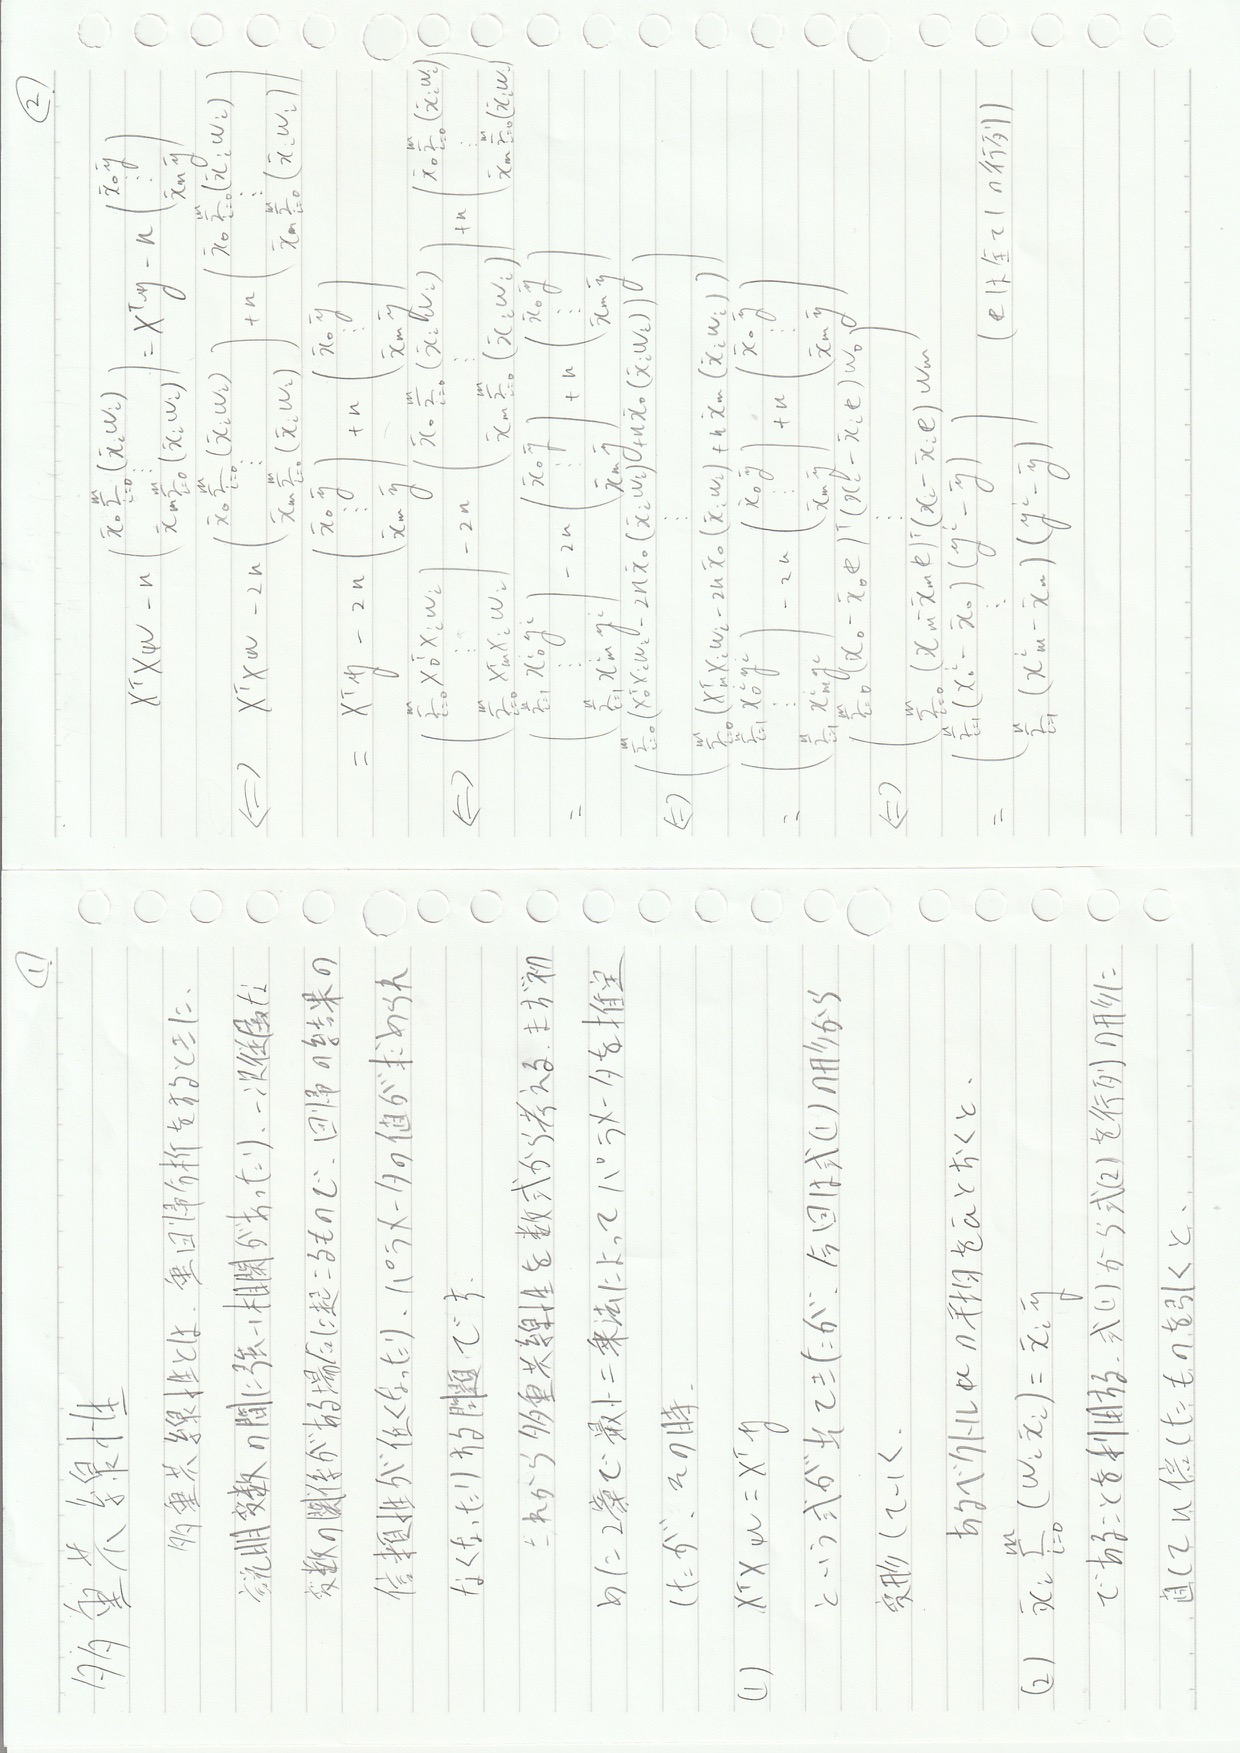 ①
多重共線性
多重共線性とは、重回帰分析をするときに、
説明変数の間に強い相関があったり、一次従属な
変数の関係がある場合に起こるもので、回帰の結果の
信頼性が低くなったり、パラメータの値が求められ
なくなったりする問題です。
これから多重共線性を数式から考える。まず初
めに2章で最小二乗法によってパラメータを推定
したが、その時、
(1) XᵀX𝕨 = Xᵀ𝕪
という式が出てきたが、今回は式(1)の形から
変形していく。
あるベクトル𝕒の平均をāとおくと、
(2) x̄ᵢ Σᵢ₌₀ᵐ (wᵢ x̄ᵢ) = x̄ᵢ ȳ
であることを利用する。式(1)から式(2)を行列の形に
直してn倍したものを引くと、
②
XᵀX𝕨 - n ( x̄₀ Σᵢ₌₀ᵐ (x̄ᵢwᵢ) ⋮ x̄ₘ Σᵢ₌₀ᵐ (x̄ᵢwᵢ) ) = Xᵀ𝕪 - n ( x̄₀ȳ ⋮ x̄ₘȳ )
⇔ XᵀX𝕨 - 2n ( x̄₀ Σᵢ₌₀ᵐ (x̄ᵢwᵢ) ⋮ x̄ₘ Σᵢ₌₀ᵐ (x̄ᵢwᵢ) ) + n ( x̄₀ Σᵢ₌₀ᵐ (x̄ᵢwᵢ) ⋮ x̄ₘ Σᵢ₌₀ᵐ (x̄ᵢwᵢ) )
= Xᵀ𝕪 - 2n ( x̄₀ȳ ⋮ x̄ₘȳ ) + n ( x̄₀ȳ ⋮ x̄ₘȳ )
⇔ ( Σᵢ₌₀ᵐ x₀ᵀxᵢwᵢ ⋮ Σᵢ₌₀ᵐ xₘᵀxᵢwᵢ ) - 2n ( x̄₀ Σᵢ₌₀ᵐ (x̄ᵢwᵢ) ⋮ x̄ₘ Σᵢ₌₀ᵐ (x̄ᵢwᵢ) ) + n ( x̄₀ Σᵢ₌₀ᵐ (x̄ᵢwᵢ) ⋮ x̄ₘ Σᵢ₌₀ᵐ (x̄ᵢwᵢ) )
= ( Σᵢ₌₁ⁿ x₀ⁱyⁱ ⋮ Σᵢ₌₁ⁿ xₘⁱyⁱ ) - 2n ( x̄₀ȳ ⋮ x̄ₘȳ ) + n ( x̄₀ȳ ⋮ x̄ₘȳ )
⇔ ( Σᵢ₌₀ᵐ (x₀ᵀxᵢwᵢ - 2nx̄₀(x̄ᵢwᵢ) + nx̄₀(x̄ᵢwᵢ)) ⋮ Σᵢ₌₀ᵐ (xₘᵀxᵢwᵢ - 2nx̄₀(x̄ᵢwᵢ) + nx̄ₘ(x̄ᵢwᵢ)) )
= ( Σᵢ₌₁ⁿ x₀ⁱyⁱ ⋮ Σᵢ₌₁ⁿ xₘⁱyⁱ ) - 2n ( x̄₀ȳ ⋮ x̄ₘȳ ) + n ( x̄₀ȳ ⋮ x̄ₘȳ )
⇔ ( Σᵢ₌₀ᵐ (x₀ - x̄₀𝕖)ᵀ(xᵢ - x̄ᵢ𝕖)w₀ ⋮ Σᵢ₌₀ᵐ (xₘ - x̄ₘ𝕖)ᵀ(xᵢ - x̄ᵢ𝕖)wₘ )
= ( Σᵢ₌₁ⁿ (x₀ⁱ - x̄₀)(yⁱ - ȳ) ⋮ Σᵢ₌₁ⁿ (xₘⁱ - x̄ₘ)(yⁱ - ȳ) ) (𝕖は全て1の行列)